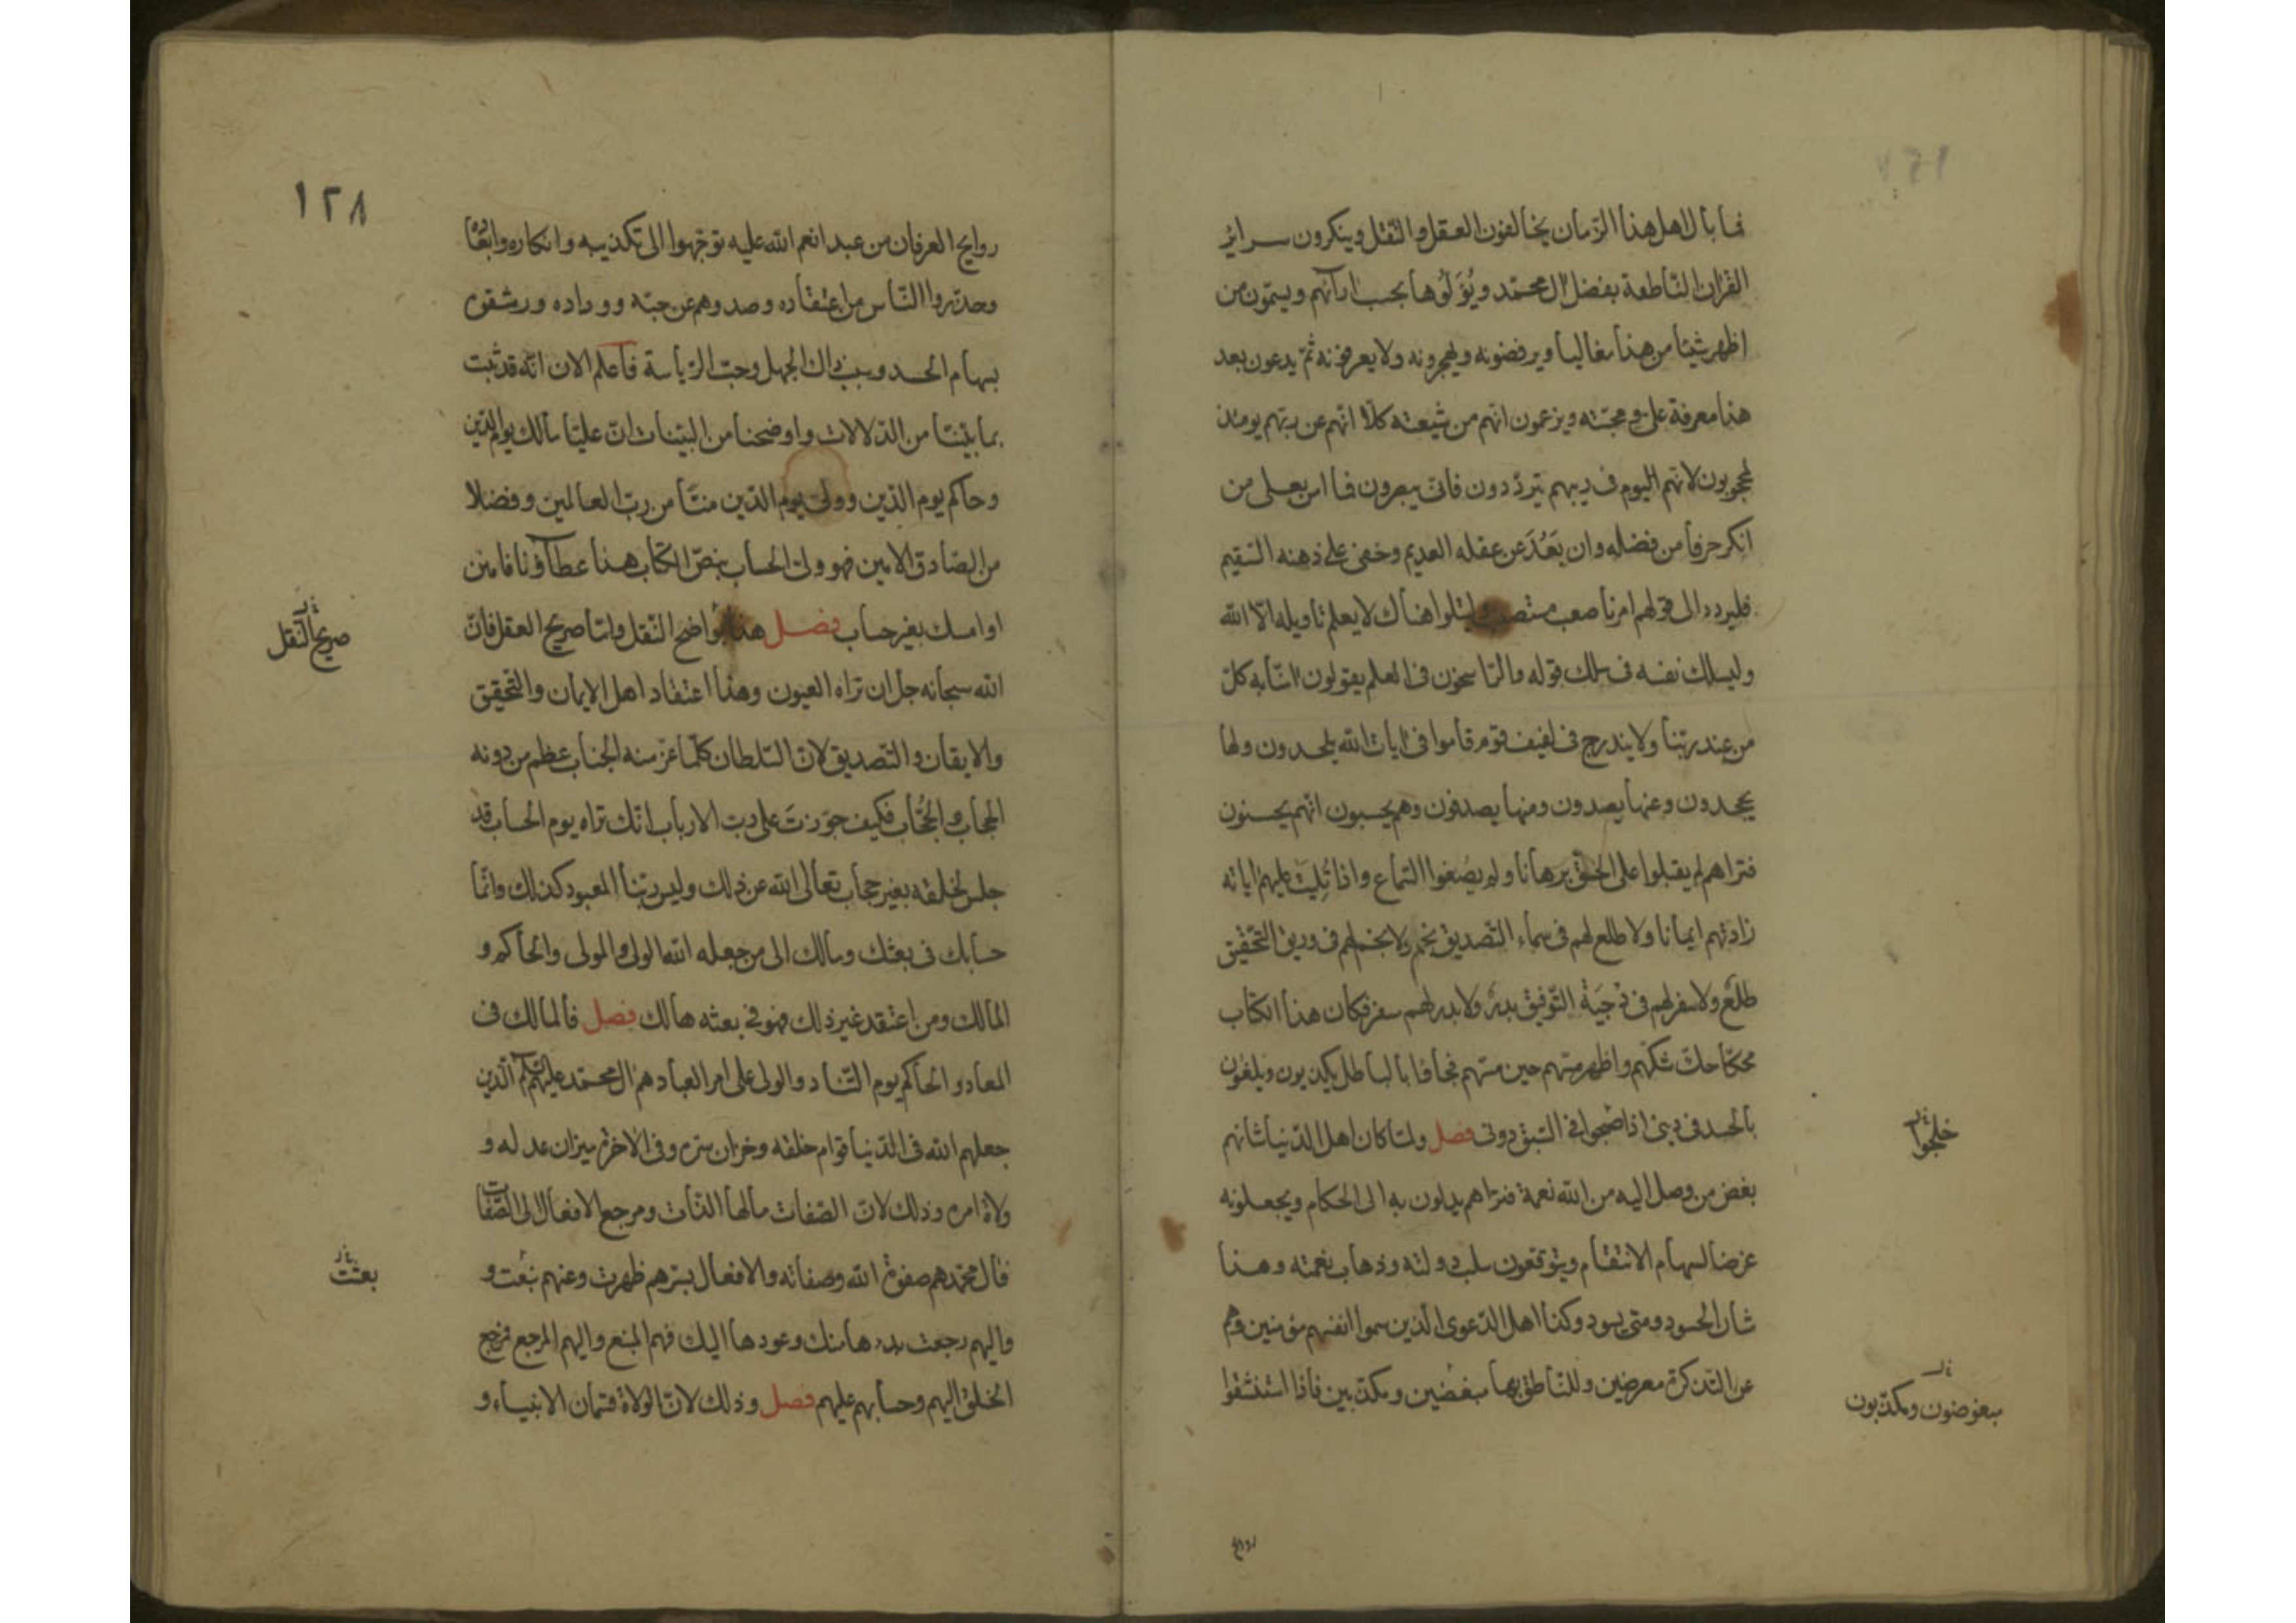 فما بال اهل هذا الزمان يخالفون العقل والنقل وينكرون سراير
القران الناطقة بفضل ال محمد ويؤلوها بحسب ارائهم ويسمون من
اظهر شيئا من هذا مغاليا ويرفضونه ويهجرونه ولا يعرفونه ثم يدعون بعد
هذا معرفة على ومحبته ويزعمون انهم من شيعته كلا انهم عن ربهم يومئذ
لمحجوبون لانهم اليوم فى ريبهم يترددون فانى يبصرون فما امن بعلى من
انكر حرفا من فضله وان بَعُدَ عن عقله العديم وخفى على ذهنه السقيم
فليرده الى قولهم امرنا صعب مستصعب وليتلوا هناك لا يعلم تاويله الا الله
وليسلك نفسه فى سلك قوله والراسخون فى العلم يقولون امنا به كل
من عند ربنا ولا يندرج فى لفيف قوم قاموا فى ايات الله يلحدون ولها
يجحدون وعنها يصدون ومنها يصدفون وهم يحسبون انهم يحسنون
فتراهم لم يقبلوا على الحق برهانا ولم يصغوا السماع واذا تُلِيَت عليهم اياته
زادتهم ايمانا ولا طلع لهم فى سماء التصديق نجم ولا نجم لهم فى وريق التحقيق
طلع ولا سفر لهم فى دجية التوفيق بدر ولا بدر لهم سفر فكان هذا الكتاب
محكا حك شكهم واظهر متهم حين مسهم فجافا بالباطل يكذبون ويلغون
بالحسد فى دينى اذا اضحوا فى السبق دونى فصل ولما كان اهل الدنيا شانهم
بغض من وصل اليه من الله نعمة فتراهم يدلون به الى الحكام ويجعلونه
غرضا لسهام الانتقام ويتوقعون سلب دولته وذهاب نعمته وهذا
شان الحسود ومتى يسود وكذا اهل الدعوى الذين سموا انفسهم مؤمنين وهم
عن التذكرة معرضين وللناطق بها مبغضين ومكذبين فاذا استنشقوا
خلجوا
مبغوضون ومكذبون
روايح
١٢٨
روايح العرفان من عبد انعم الله عليه توجهوا الى تكذيبه وانكاره وابعا
وحذروا الناس من اعتقاده وصدوهم عن حبه ووداده ورشقوه
بسهام الحسد وسبب ذاك الجهل وحب الرياسة فاعلم الان انه قد ثبت
بما بيننا من الدلالات واوضحنا من البينات ان عليا مالك يوم الدين
وحاكم يوم الدين وولى يوم الدين منا من رب العالمين وفضلا
من الصادق الامين فهو ولى الحساب بنص الكتاب هذا عطاؤنا فامنن
او امسك بغير حساب فصل هذا واضح النقل واما صريح العقل فان
الله سبحانه جل ان تراه العيون وهذا اعتقاد اهل الايمان والتحقيق
والايقان والتصديق لان السلطان كلما عز منه الجناب عظم من دونه
الحجاب والحُجّاب فكيف جوزتَ على رب الارباب انك تراه يوم الحساب قد
جلس لخلقه بغير حجاب تعالى الله عن ذلك وليس ربنا المعبود كذلك وانما
حسابك فى بعثك ومالك الى من جعله الله الولى والمولى والحاكم و
المالك ومن اعتقد غير ذلك فهو فى بعثه هالك فصل فالمالك فى
المعاد والحاكم يوم التناد والولى على امر العباد هم ال محمد عليهم السلام الذين
جعلهم الله فى الدنيا قوام خلقه وخزان سره وفى الاخرة ميزان عدله و
ولاة امره وذلك لان الصفات مالها الذات ومرجع الافعال الى الصفات
فال محمد هم صفوة الله وصفاته والافعال بسرهم ظهرت وعنهم بعثت و
واليهم رجعت بدءها منك وعودها اليك فهم المنبع واليهم المرجع فرجع
الخلق اليهم وحسابهم عليهم فصل وذلك لان الولاة قسمان الانبياء و
صريح النقل
بعثت